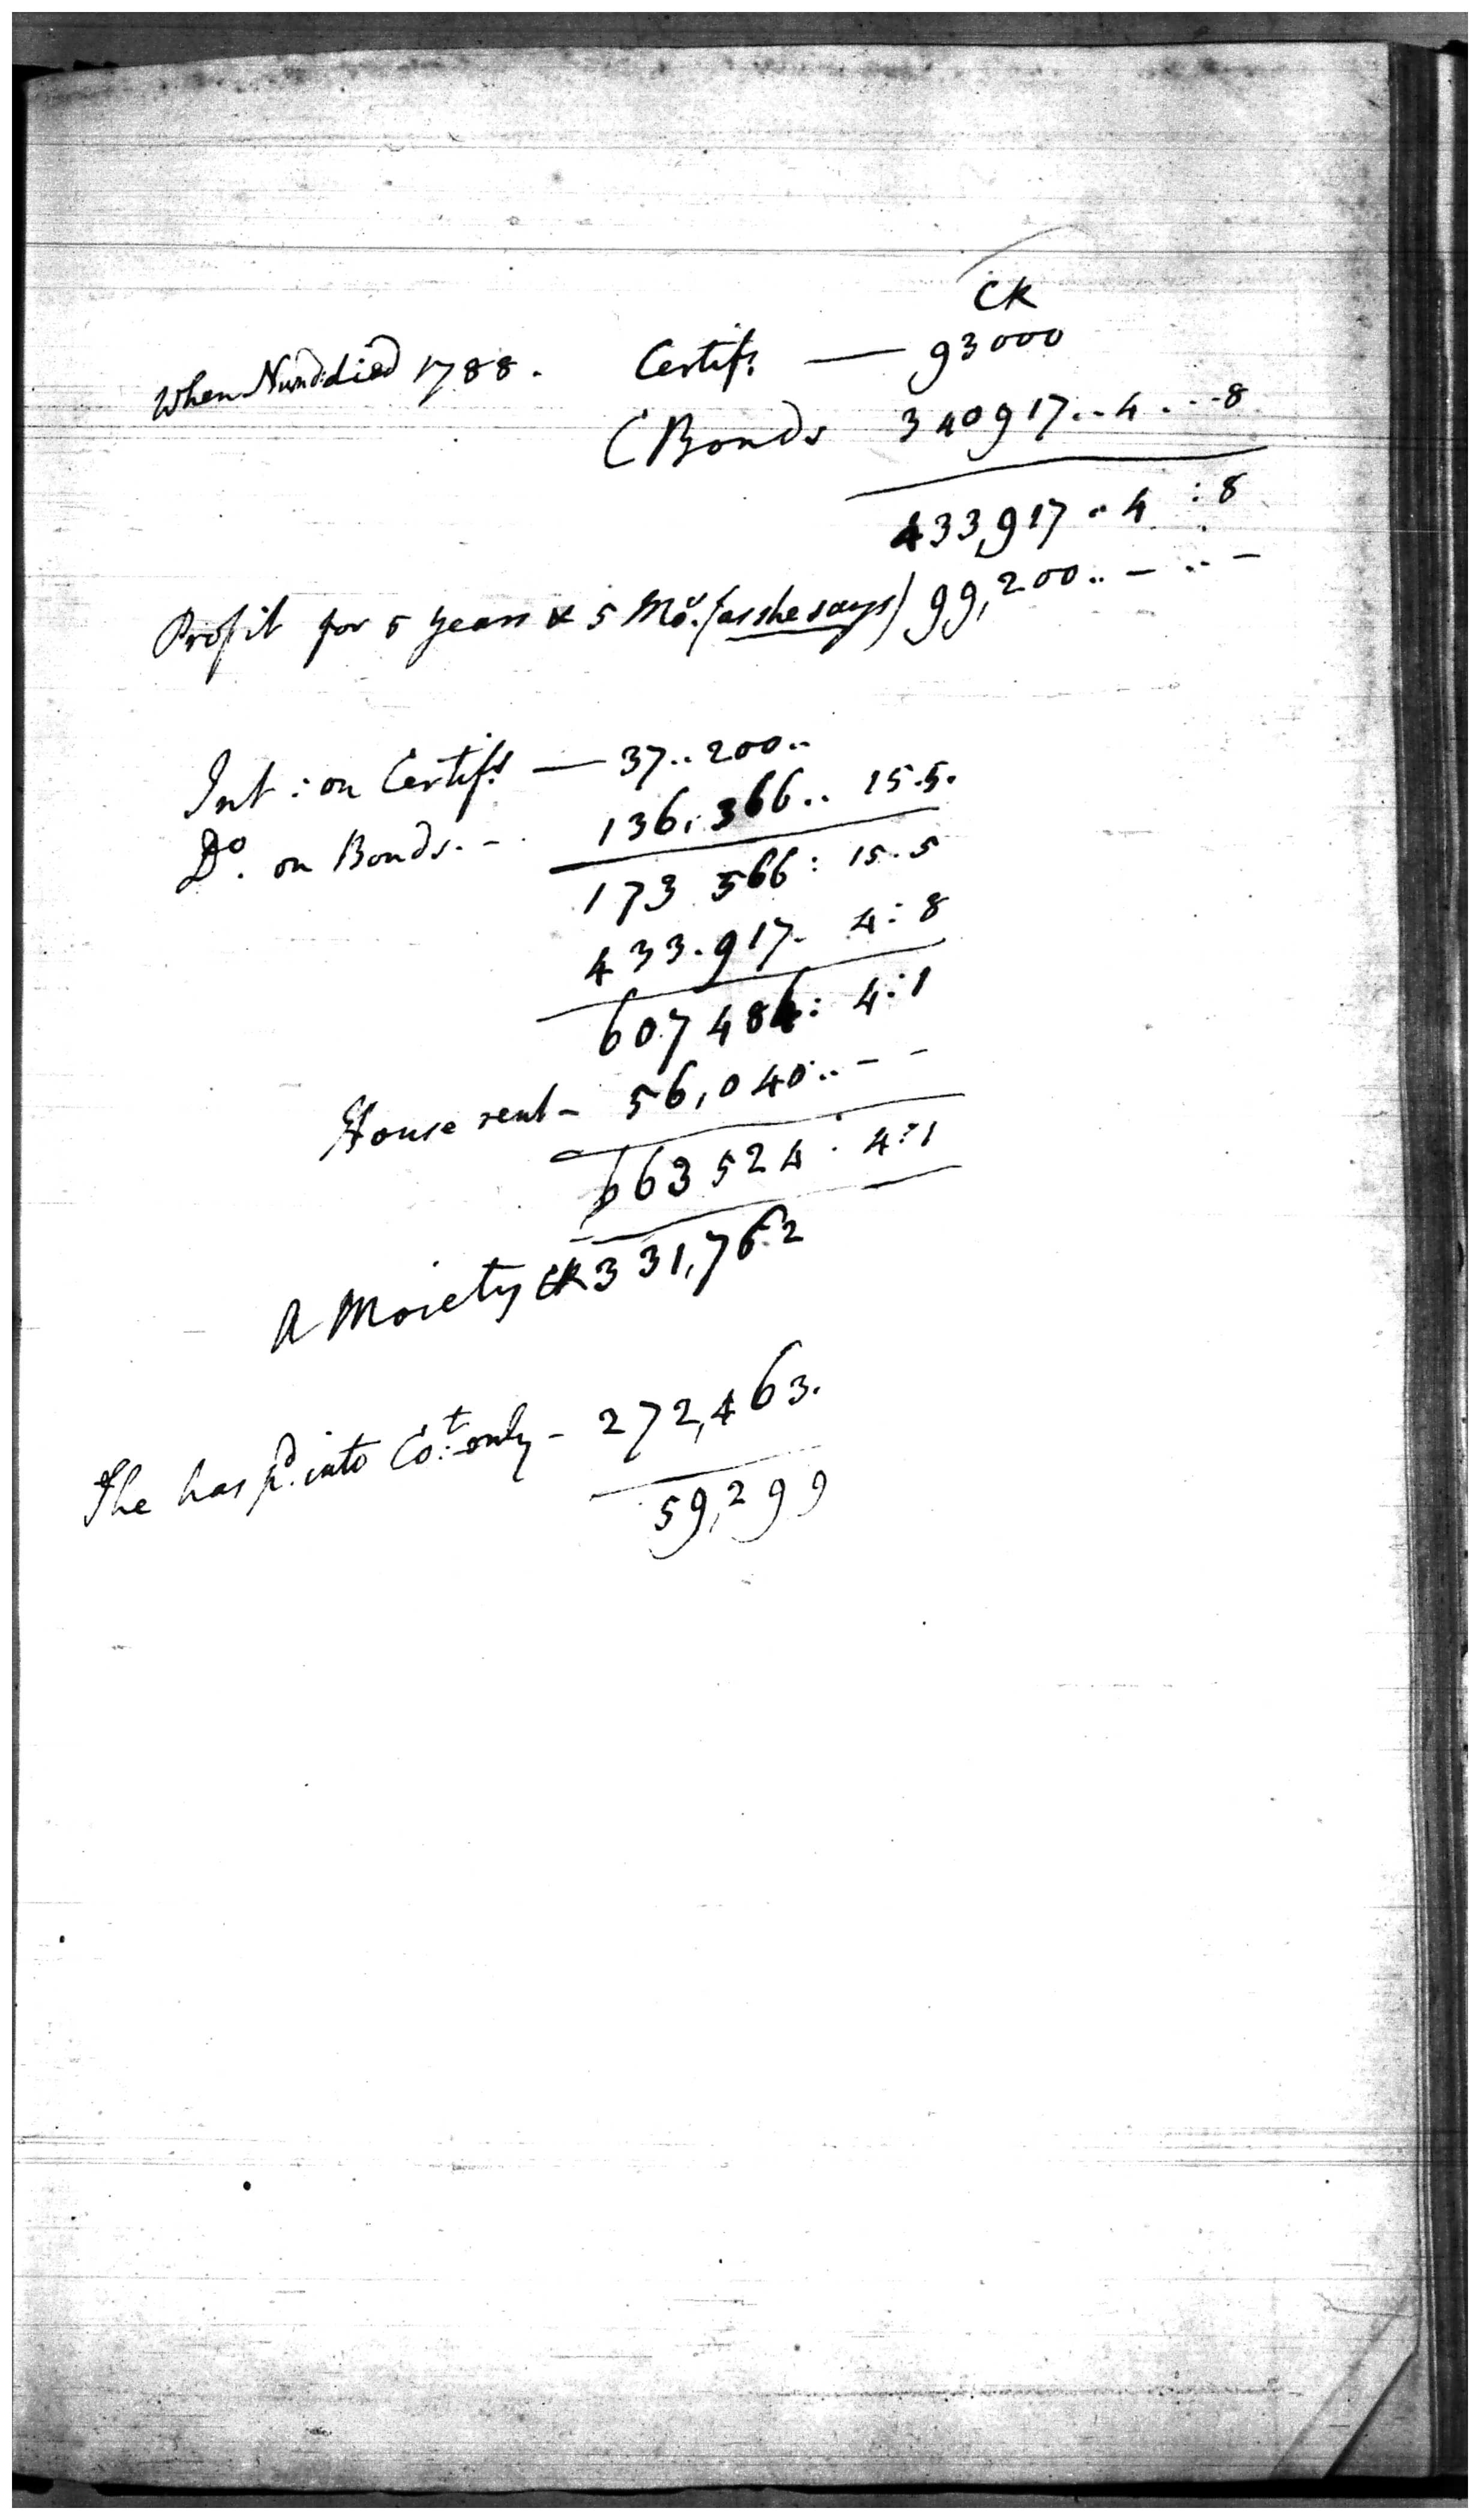 CR
When Nund: died 1788. Certifs — 93000
(Bonds 340917..4...8
433,917..4:8
Profit for 5 years & 5 Mos. (as she says) 99,200..—..—
Int: on Certifs — 37..200..
Do. on Bonds.-. 136,366.. 15.5.
173.566: 15.5
433.917. 4:8
607484: 4:1
House rent - 56,040..--
663524: 4:1
A Moiety CR 331,762
She has pd. into Cot: only - 272,463.
59,299